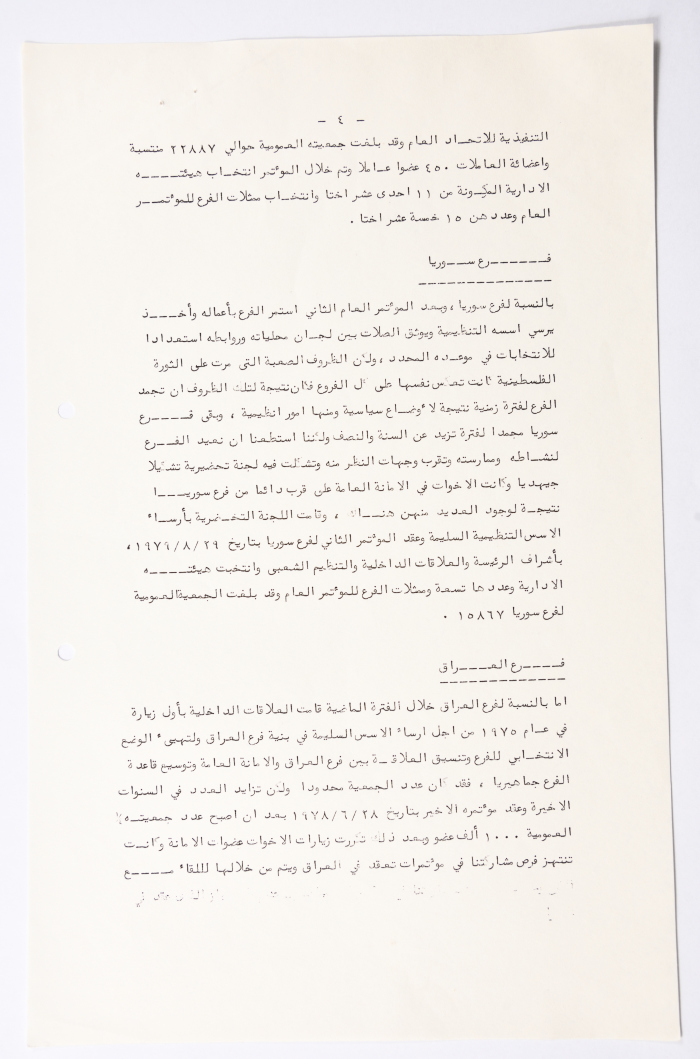 - ٤ -
التنفيذية للاتحـاد العام وقد بلغت جمعيته العمومية حوالي ٢٢٨٨٧ منتسبة
واعضائة العاملات ٤٥٠ عضوا عـاملا وتم خلال المؤتمر انتخـاب هيئتــــه
الادارية المكونة من ١١ احدى عشر اختا وانتخـاب ممثلات الفرع للموٴتمـــر
العام وعددهن ١٥ خمسة عشر اختا .
فــــــرع ســـوريا
بالنسبة لفرع سوريا ، وبعد الموٴتمر العام الثاني استمر الفرع بأعماله وأخــــذ
يرسي اسسه التنظيمية ويوثق الصلات بين لجـان محلياته وروابطه استعدادا
للانتخابات في موعـده المحدد ، ولكن الظروف الصعبة التى مرت على الثورة
الفلسطينية كانت تعكس نفسها على كل الفروع فكان نتيجة لتلك الظروف ان تجمد
الفرع لفترة زمنية نتيجة لاٴوضـاع سياسية ومنها امور انظيمية ، وبقى فــــرع
سوريا مجمدا لفترة تزيد عن السنة والنصف ولكننا استطعنا ان نعيد الفــرع
لنشـاطه وممارسته وتقرب وجهات النظر منه وتشكلت فيه لجنة تحضيرية تشكيلا
جيهديا وكانت الاخوات في الامانة العامة على قرب دائما من فرع سوريــــا
نتيجـة لوجود العديد منهن هنــاك ، وقامت اللجنة التحضيرية بأرســاء
الاسس التنظيمية السليمة وعقد الموٴتمر الثاني لفرع سوريا بتاريخ ١٩٧٩/٨/٢٩ ،
بأشراف الرئيسة والعلاقات الداخلية والتنظيم الشعبى وانتخبت هيئتــــه
الادارية وعددها تسعة وممثلات الفرع للموٴتمر العام وقد بلغت الجمعية العمومية
لفرع سوريا ١٥٨٦٧ .
فــــرع العـــراق
اما بالنسبة لفرع العراق خلال الفترة الماضية قامت العلاقات الداخلية بأول زيارة
في عـام ١٩٧٥ من اجل ارساء الاسس السليمة في بنية فرع العراق ولتهيىء الوضع
الانتخابي للفرع وتنسيق العلاقـة بين فرع العراق والامانة العامة وتوسيع قاعدة
الفرع جماهيريا ، فقد كان عدد الجمعية محدودا ولكن تزايد العدد في السنوات
الاخيرة وعقد موٴتمره الاخير بتاريخ ١٩٧٨/٦/٢٨ بعد ان اصبح عدد جمعيتــه
العمومية ١٠٠٠ ألف عضو وبعد ذلك تكررت زيارات الاخوات عضوات الامانة وكانـت
تنتهز فرص مشاركتنا في موٴتمرات تعقد في العراق ويتم من خلالها للقاء مــــع